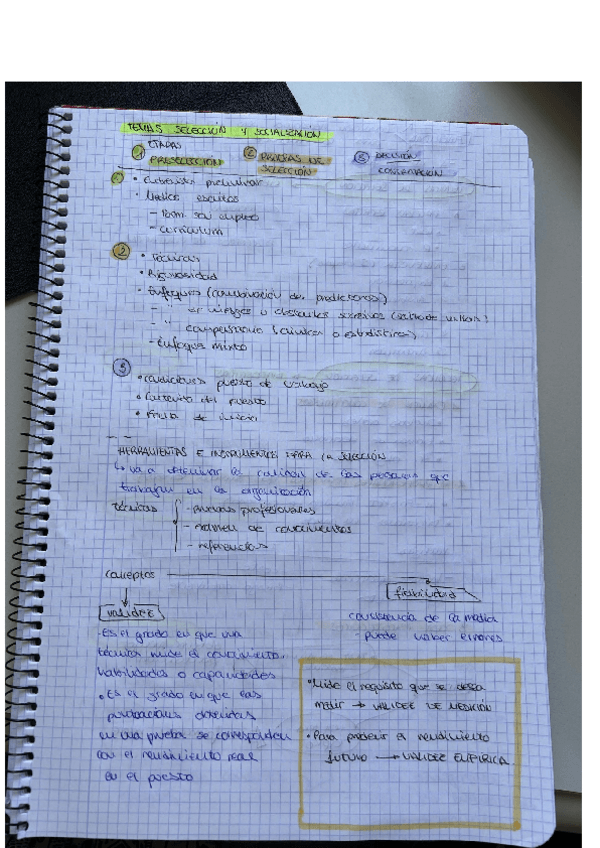 TEMA5 SELECCIÓN Y SOCIALIZACIÓN
ETAPAS
① PRESELECCIÓN ② PRUEBAS DE SELECCIÓN ③ DECISIÓN CONTRATACIÓN
① • Entrevista preliminar
• Medios escritos
- Form. sol. empleo
- Curriculum
② • Técnicas
• Rigurosidad
- Enfoques (combinación de predictores)
- " de vallas u obstáculos sucesivos
- " compensatorio (clínicos o estadísticos)
- Enfoque mixto
③ • condiciones puesto de trabajo
• Contenido del puesto
• Fecha de inicio
HERRAMIENTAS E INSTRUMENTOS PARA la SELECCIÓN
↳ va a determinar la calidad de las personas que
trabajan en la organización
técnicas - pruebas profesionales
- examen de conocimientos
- referencias
conceptos
validez
fiabilidad
- Es el grado en que una
técnica mide el conocimiento,
habilidades o capacidades
• Es el grado en que las
puntuaciones obtenidas
en una prueba se corresponden
con el rendimiento real
en el puesto
consistencia de la medida
- puede haber errores
• Mide el requisito que se desea
medir → VALIDEZ DE MEDICIÓN
• Para predecir el rendimiento
futuro → VALIDEZ EMPÍRICA